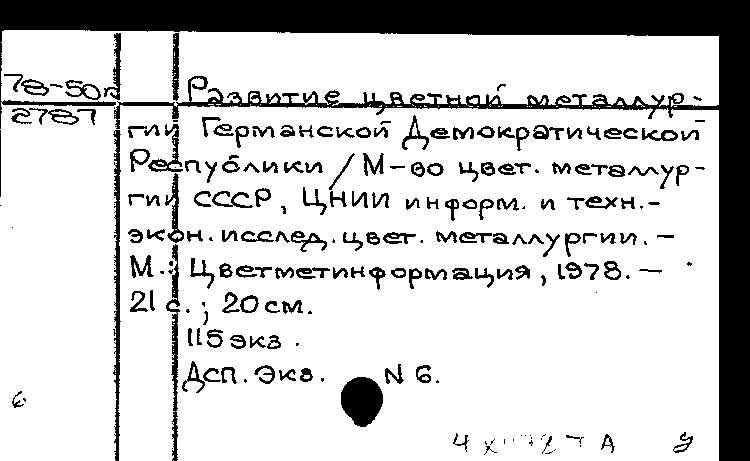 78-50п
2787
Развитие цветной металлур-
гии Германской Демократической
Республики / М-во цвет. металлур-
гии СССР, ЦНИИ информ. и техн.-
экон. исслед. цвет. металлургии. –
М.: Цветметинформация, 1978. –
21 с. ; 20 см.
115 экз.
Дсп. Экз. N 6.
6